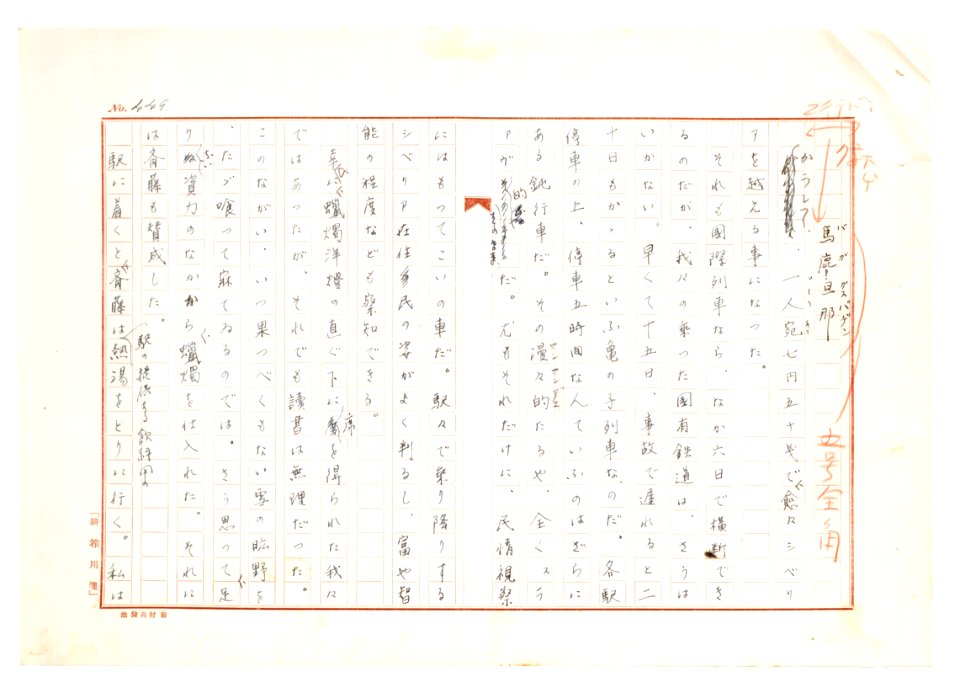 No. 449.
五号全角
馬鹿旦那
バガ ガスパヂン
かうして、一人宛七円五十戋で愈々シベリ
アを越える事になつた。
それも国際列車なら、なか六日で横断でき
るのだが、我々の乗つた国有鉄道は、さうは
いかない。早くて十五日、事故で遅れると二
十日もかゝるといふ亀の子列車なのだ。各駅
停車の上、停車五時間なんていふのはざらに
ある鈍行車だ。その漫々的たるや、全くスラ
ヴ的そのまゝだ。尤もそれだけに、民情視察
にはもつてこいの車だ。駅々で乗り降りする
シベリア在住多民の姿がよく判るし、富や智
能の程度なども察知できる。
幸ひに蠟燭洋燈の直ぐ下に席を得られた我々
ではあつたが、それでも讀書は無理だつた。
このながい、いつ果つべくもない雪の昿野を
、たゞ喰つて寐てゐるのでは。さう思つて乏
しい資力のなかから蠟燭を仕入れた。それに
は斉藤も賛成した。
駅に着くと斉藤は駅の提供する飲料用の熱湯をとりに行く。私は
「研搾用箋」